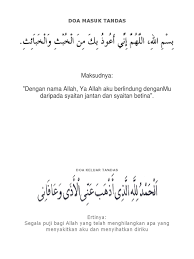 DOA MASUK TANDAS
بِسْمِ اللهِ، اَللَّهُمَّ إِنِّي أَعُوذُ بِكَ مِنَ الْخُبْثِ وَالْخَبَائِثِ.
Maksudnya:
"Dengan nama Allah, Ya Allah aku berlindung denganMu
daripada syaitan jantan dan syaitan betina".
DOA KELUAR TANDAS
اَلْحَمْدُ لِلّٰهِ الَّذِي أَذْهَبَ عَنِّي الْأَذَى وَعَافَانِي
Ertinya:
Segala puji bagi Allah yang telah menghilangkan apa yang
menyakitkan aku dan menyihatkan diriku